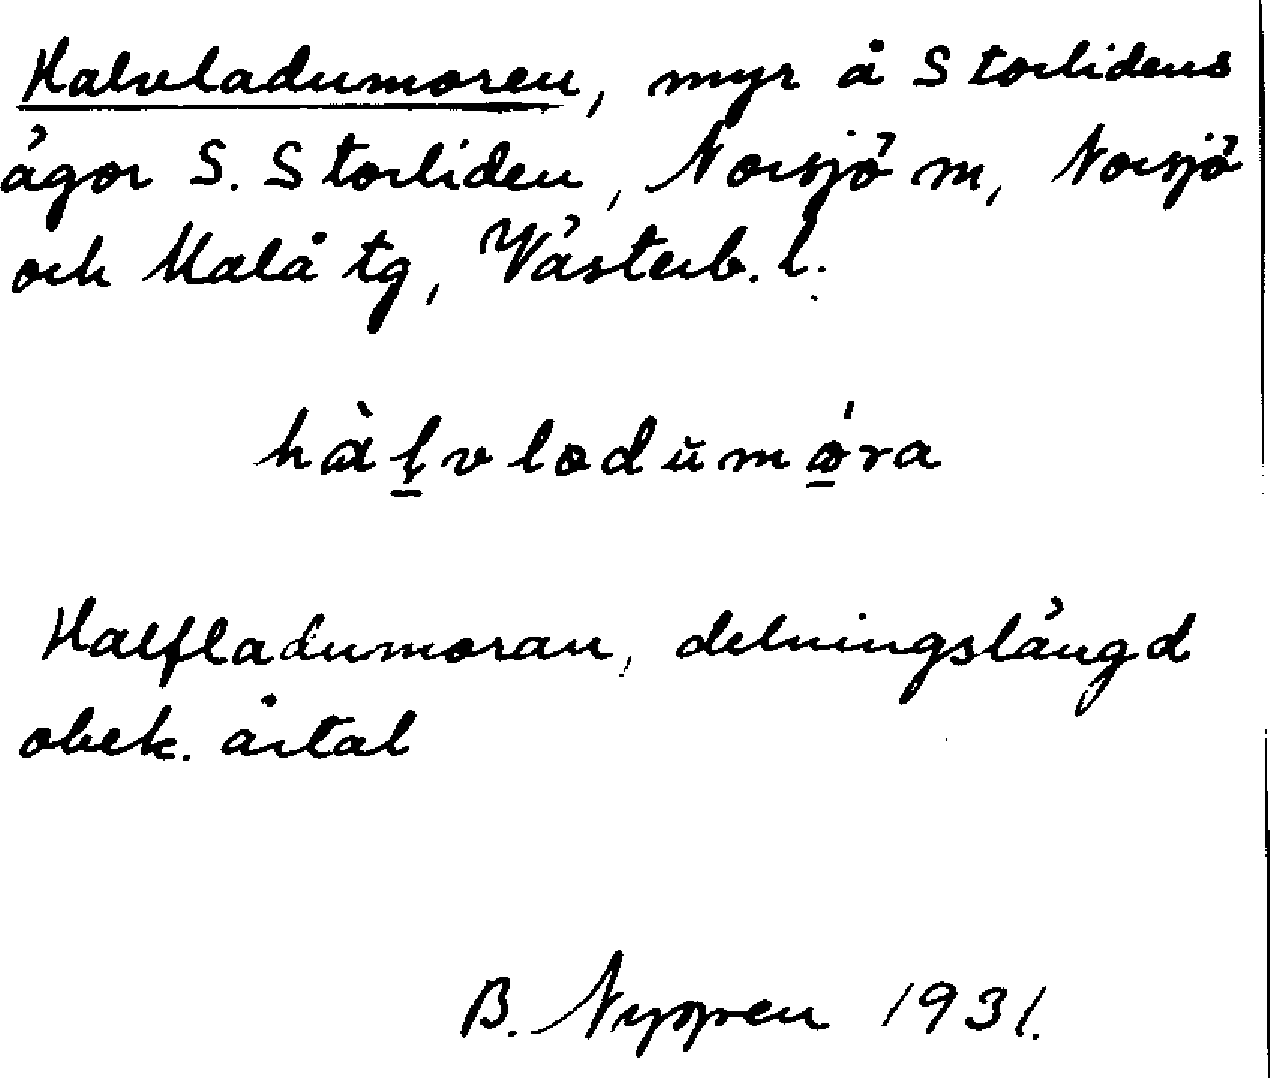 Halvladumoren, myr å Storlidens
ägor S. Storliden, Norsjö sn, Norsjö
och Malå tg, Västerb. l.
hàl̠vladŭmó̠ra
Halfladumoran, delningslängd
obek. årtal
B. Nygren 1931.